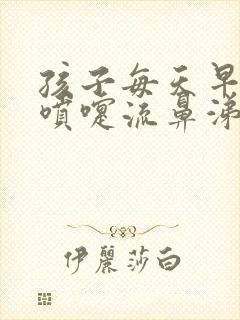 孩子每天早
噴嚏流鼻涕
伊麗莎白